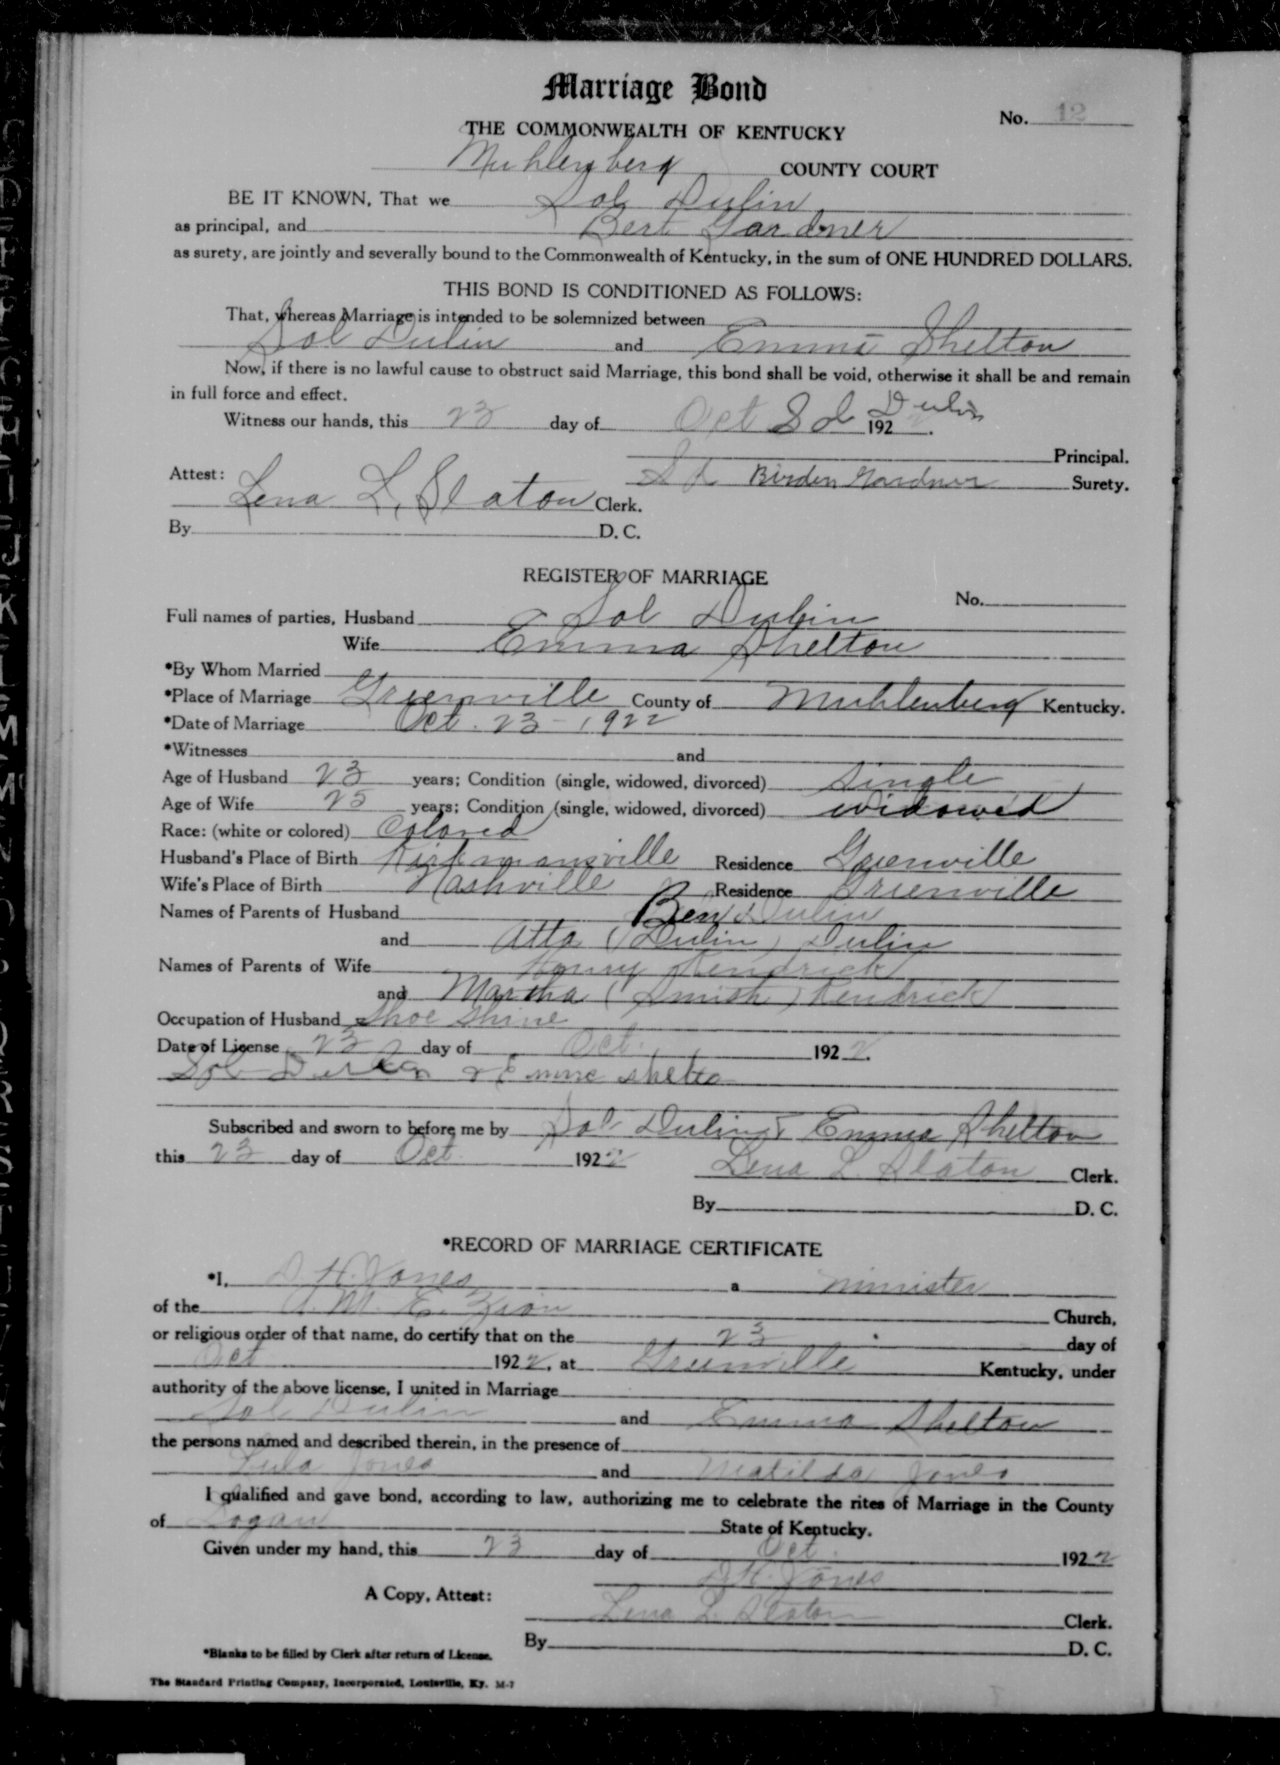 Marriage Bond
No. 12
THE COMMONWEALTH OF KENTUCKY
Muhlenberg COUNTY COURT
BE IT KNOWN, That we Sol Dulin
as principal, and Bert Gardner
as surety, are jointly and severally bound to the Commonwealth of Kentucky, in the sum of ONE HUNDRED DOLLARS.
THIS BOND IS CONDITIONED AS FOLLOWS:
That, whereas Marriage is intended to be solemnized between
Sol Dulin and Emma Shelton
Now, if there is no lawful cause to obstruct said Marriage, this bond shall be void, otherwise it shall be and remain
in full force and effect.
Witness our hands, this 23 day of Oct 192 .
Sol Dulin
Principal.
Attest: Birden Gardner Surety.
Lena L. Slaton Clerk.
By D. C.
REGISTER OF MARRIAGE
No.
Full names of parties, Husband Sol Dulin
Wife Emma Shelton
*By Whom Married
*Place of Marriage Greenville County of Muhlenberg Kentucky.
*Date of Marriage Oct. 23 - 1922
*Witnesses and
Age of Husband 23 years; Condition (single, widowed, divorced) Single
Age of Wife 25 years; Condition (single, widowed, divorced) widowed
Race: (white or colored) Colored
Husband's Place of Birth Kirkmansville Residence Greenville
Wife's Place of Birth Nashville Residence Greenville
Names of Parents of Husband Ben Dulin
and Atta (Dulin) Dulin
Names of Parents of Wife Henry Kendrick
and Martha ( ) Kendrick
Occupation of Husband Shoe Shine
Date of License 23 day of Oct. 1922.
Sol Dulin & Emma Shelto
Subscribed and sworn to before me by Sol Dulin & Emma Shelton
this 23 day of Oct 1922
Lena L. Slaton Clerk.
By D. C.
*RECORD OF MARRIAGE CERTIFICATE
*I, H. Jones a minister
of the A. M. E. Zion Church,
or religious order of that name, do certify that on the 23 day of
Oct 1922, at Greenville Kentucky, under
authority of the above license, I united in Marriage
Sol Dulin and Emma Shelton
the persons named and described therein, in the presence of
Lula Jones and Matilda Jones
I qualified and gave bond, according to law, authorizing me to celebrate the rites of Marriage in the County
of Logan State of Kentucky.
Given under my hand, this 23 day of Oct. 1922
H. Jones
A Copy, Attest:
Lena L. Slaton Clerk.
By D. C.
*Blanks to be filled by Clerk after return of License.
The Standard Printing Company, Incorporated, Louisville, Ky. M-7